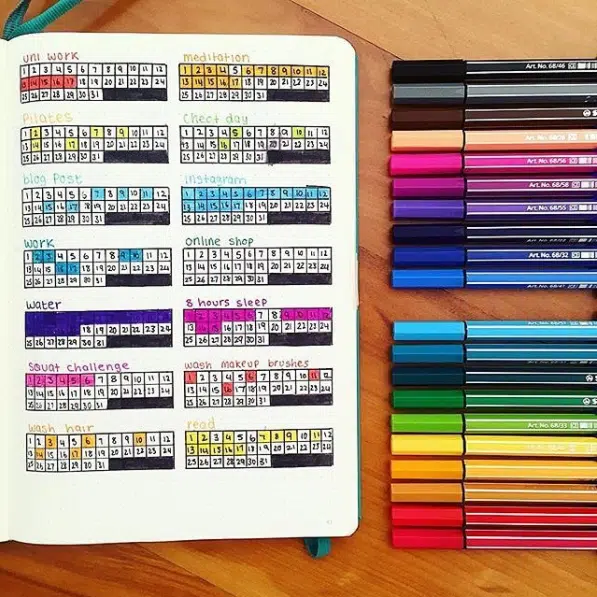 uni work
1 2 3 4 5 6 7 8 9 10 11 12
13 14 15 16 17 18 19 20 21 22 23 24
25 26 27 28 29 30 31
meditation
1 2 3 4 5 6 7 8 9 10 11 12
13 14 15 16 17 18 19 20 21 22 23 24
25 26 27 28 29 30 31
Pilates
1 2 3 4 5 6 7 8 9 10 11 12
13 14 15 16 17 18 19 20 21 22 23 24
25 26 27 28 29 30 31
Cheat day
1 2 3 4 5 6 7 8 9 10 11 12
13 14 15 16 17 18 19 20 21 22 23 24
25 26 27 28 29 30 31
blog post
1 2 3 4 5 6 7 8 9 10 11 12
13 14 15 16 17 18 19 20 21 22 23 24
25 26 27 28 29 30 31
instagram
1 2 3 4 5 6 7 8 9 10 11 12
13 14 15 16 17 18 19 20 21 22 23 24
25 26 27 28 29 30 31
work
1 2 3 4 5 6 7 8 9 10 11 12
13 14 15 16 17 18 19 20 21 22 23 24
25 26 27 28 29 30 31
online shop
1 2 3 4 5 6 7 8 9 10 11 12
13 14 15 16 17 18 19 20 21 22 23 24
25 26 27 28 29 30 31
Water
18 19 20 21 22 23 24
25 26 27 28 29 30 31
8 hours sleep
1 2 3 4 5 6 7 8 9 10 11 12
13 14 15 16 17 18 19 20 21 22 23 24
25 26 27 28 29 30 31
squat challenge
1 2 3 4 5 6 7 8 9 10 11 12
13 14 15 16 17 18 19 20 21 22 23 24
25 26 27 28 29 30 31
wash makeup brushes
1 2 3 4 5 6 7 8 9 10 11 12
13 14 15 16 17 18 19 20 21 22 23 24
25 26 27 28 29 30 31
wash hair
1 2 3 4 5 6 7 8 9 10 11 12
13 14 15 16 17 18 19 20 21 22 23 24
25 26 27 28 29 30 31
read
1 2 3 4 5 6 7 8 9 10 11 12
13 14 15 16 17 18 19 20 21 22 23 24
25 26 27 28 29 30 31
Art.No.68/46
Art.No.68/56
Art.No.68/58
Art.No.68/55
Art.No.68/32
Art.No.68/33